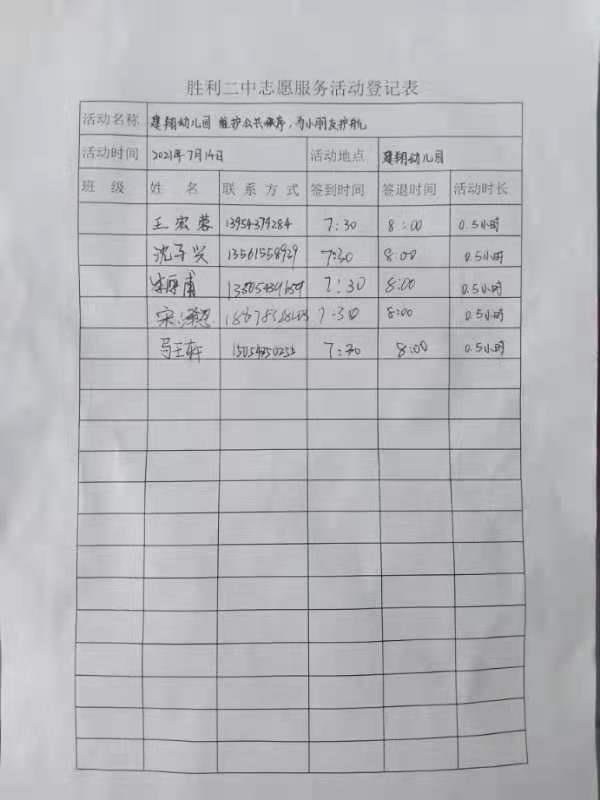 胜利二中志愿服务活动登记表
活动名称 建翔幼儿园 维护公共秩序,为小朋友护航
活动时间 2021年7月14日 活动地点 建翔幼儿园
班 级 姓 名 联 系 方 式 签到时间 签退时间 活动时长
王宏蓉 13954379284 7:30 8:00 0.5小时
沈子兴 13561558929 7:30 8:00 0.5小时
7:30 8:00 0.5小时
宋 7:30 8:00 0.5小时
马王轩 15054250255 7:30 8:00 0.5小时